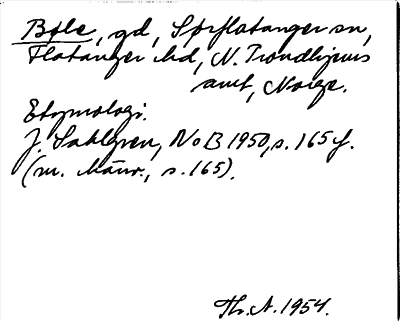 Bøle, gd, Sørflatanger sn,
Flatanger hd, N. Trondhjems
amt, Norge.
Etymologi.
J. Sahlgren, NoB 1950, s. 165 f.
(m. hänv., s. 165).
Th. A. 1954.